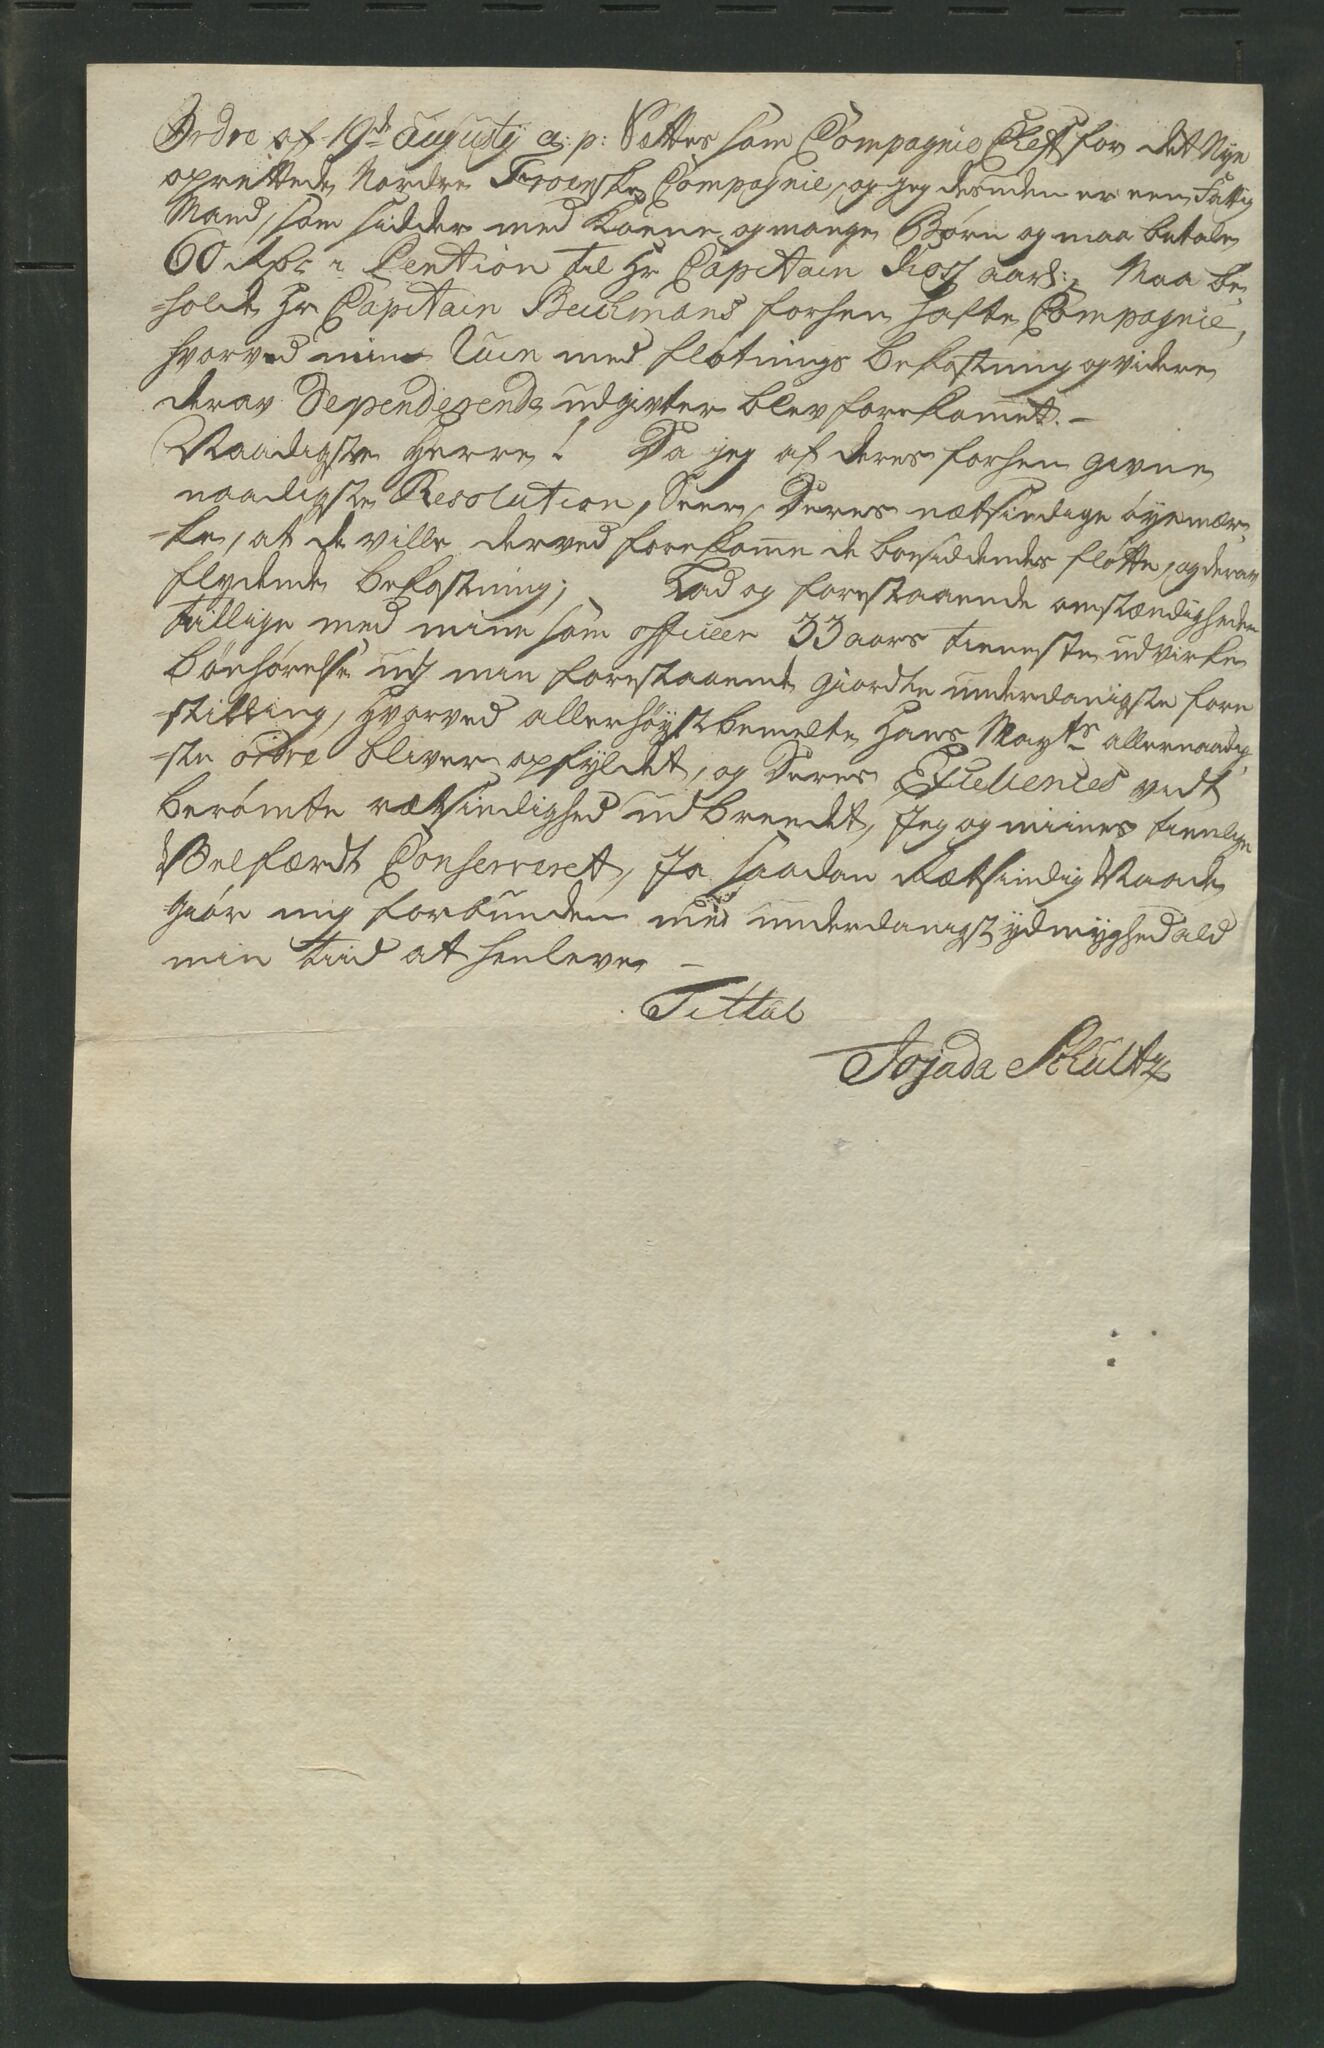 Ordre af 19de Augustij a: p: Sættes som Compagnie Cheff for det Nye
oprettede Nordre Compagnie, og jeg desuden er een Fattig
Mand, som sidder med Koene og mange Børn og maa betale
60 Rdr i Pention til Hr Capitain aarl: Maa be¬
holde Hr Capitain Beichmans forhen hafte Compagnie,
hvorved min Ruin med fløtnings Bekostning og videre
derav Dependerende udgivter blev forekommet. –
Naadigste Herre! Da jeg af deres forhen givne
naadigste Resolution, Seer, Deres rætsindige øyemær¬
ke, at de ville derved forekomme de boesiddendes fløtte, og derav
flydende bekostning; Lad og forestaaende omstændigheder
tillige med mine som officeer 33 aars tieneste udvirke
bønhørelse udj min forestaaende giordte underdanigste fore
stilling, Hvorved allerhøystbemelte Hans Mayts allernaadig¬
ste ordre bliver opfyldet, og Deres Excellences vidt
berømte rætsindighed udbreedt, Jeg og miines timelige
Velfærdt Conserveret, Ja saadan Rætsindig Naade
giør mig forbunden med underdanigst ydmyghed ald
min tiid at henleve –
Tittul
Jojada Schultz